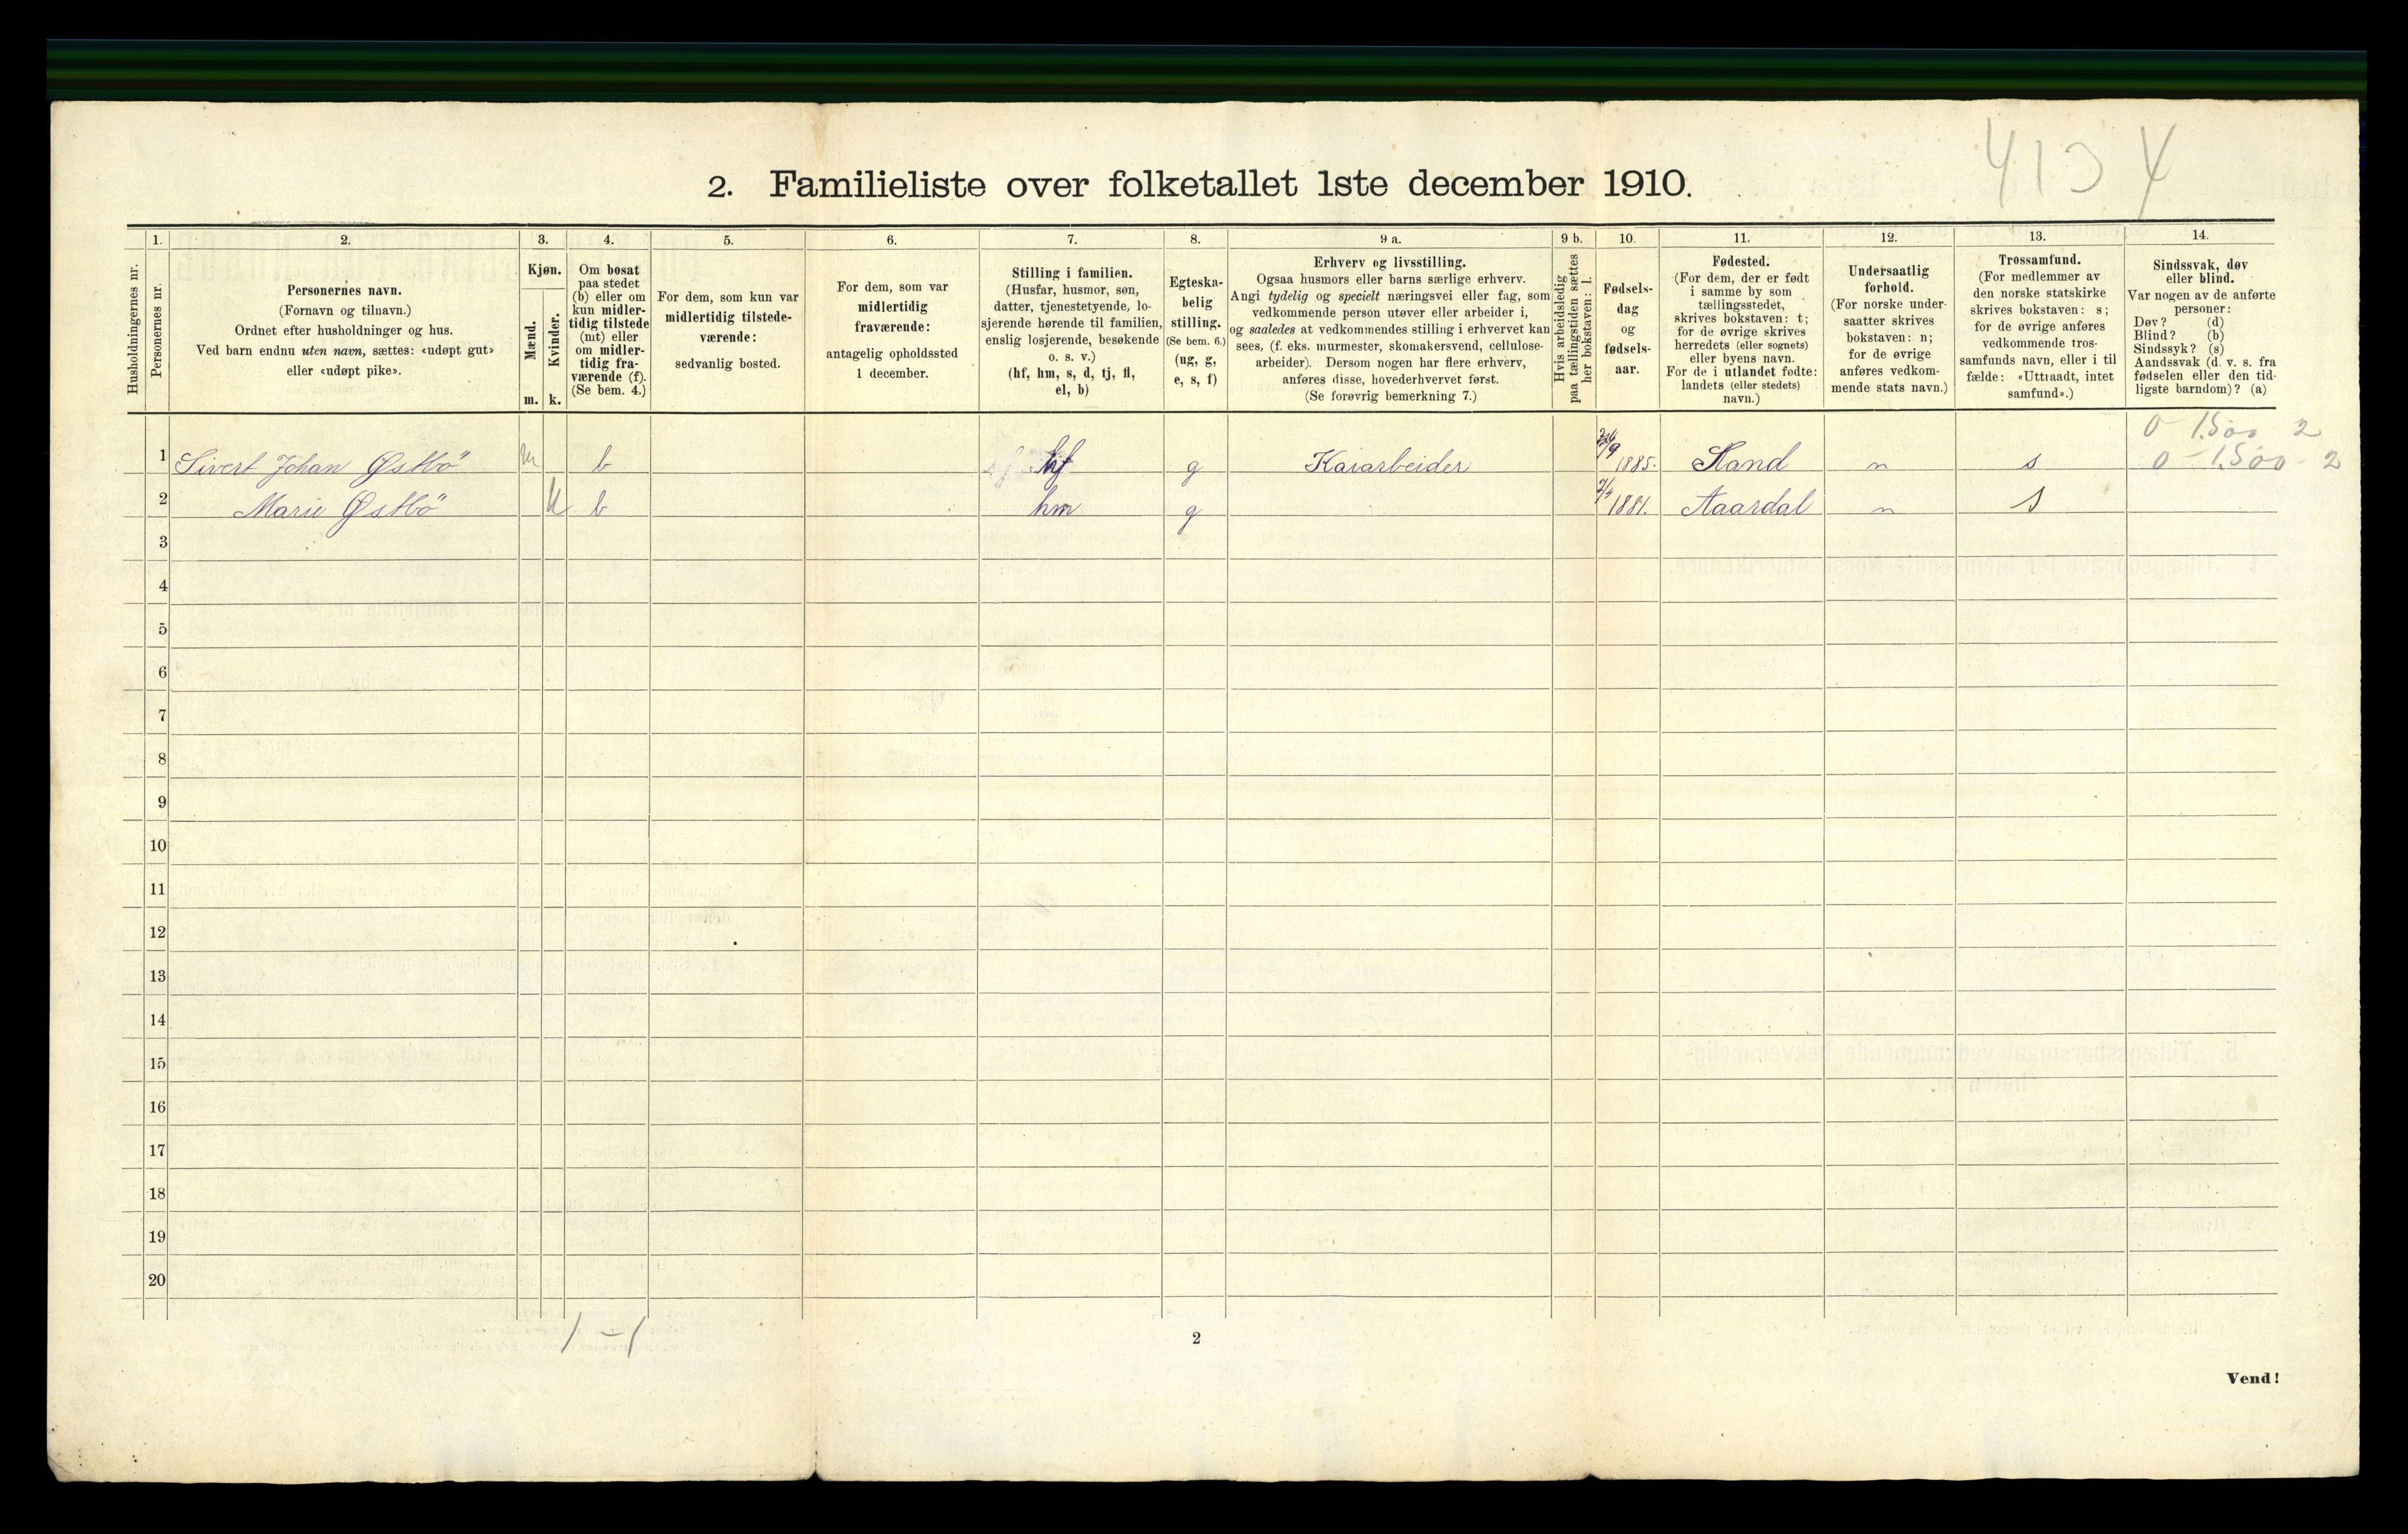 413 4
2. Familieliste over folketallet 1ste december 1910.
Husholdningernes nr.
1.
Personernes nr.
2.
Personernes navn.
(Fornavn og tilnavn.)
Ordnet efter husholdninger og hus.
Ved barn endnu uten navn, sættes: «udøpt gut»
eller «udøpt pike».
3.
Kjøn.
Mænd.
m.
Kvinder.
k.
4.
Om bosat
paa stedet
(b) eller om
kun midler-
tidig tilstede
(mt) eller
om midler-
tidig fra-
værende (f).
(Se bem. 4.)
5.
For dem, som kun var
midlertidig tilstede-
værende:
sedvanlig bosted.
6.
For dem, som var
midlertidig
fraværende:
antagelig opholdssted
1 december.
7.
Stilling i familien.
(Husfar, husmor, søn,
datter, tjenestetyende, lo-
sjerende hørende til familien,
enslig losjerende, besøkende
o. s. v.)
(hf, hm, s, d, tj, fl,
el, b)
8.
Egteska-
belig
stilling.
(Se bem. 6.)
(ug, g,
e, s, f)
9 a.
Erhverv og livsstilling.
Ogsaa husmors eller barns særlige erhverv.
Angi tydelig og specielt næringsvei eller fag, som
vedkommende person utøver eller arbeider i,
og saaledes at vedkommendes stilling i erhvervet kan
sees, (f. eks. murmester, skomakersvend, cellulose-
arbeider). Dersom nogen har flere erhverv,
anføres disse, hovederhvervet først.
(Se forøvrig bemerkning 7.)
9 b.
Hvis arbeidsledig
paa tællingstiden sættes
her bokstaven: l.
10.
Fødsels-
dag
og
fødsels-
aar.
11.
Fødested.
(For dem, der er født
i samme by som
tællingsstedet,
skrives bokstaven: t;
for de øvrige skrives
herredets (eller sognets)
eller byens navn.
For de i utlandet fødte:
landets (eller stedets)
navn.)
12.
Undersaatlig
forhold.
(For norske under-
saatter skrives
bokstaven: n;
for de øvrige
anføres vedkom-
mende stats navn.)
13.
Trossamfund.
(For medlemmer av
den norske statskirke
skrives bokstaven: s;
for de øvrige anføres
vedkommende tros-
samfunds navn, eller i til
fælde: «Uttraadt, intet
samfund».)
14.
Sindssvak, døv
eller blind.
Var nogen av de anførte
personer:
Døv? (d)
Blind? (b)
Sindssyk? (s)
Aandssvak (d. v. s. fra
fødselen eller den tid-
ligste barndom)? (a)
0 - 1.500 2
1 Sivert Johan Østbö m b hf g Kaiarbeider 1885. Sand n s 0 - 1.500 - 2
2 Marie Østbö k b hm g 1881. Aardal n s
3
4
5
6
7
8
9
10
11
12
13
14
15
16
17
18
19
20
1 - 1
2
Vend!